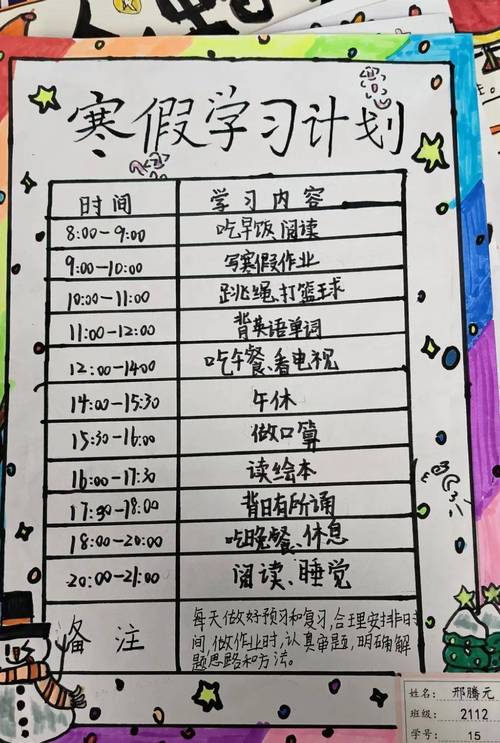 寒假学习计划
时间 学习内容
8:00-9:00 吃早饭、阅读
9:00-10:00 写寒假作业
10:00-11:00 跳绳、打篮球
11:00-12:00 背英语单词
12:00-14:00 吃午餐、看电视
14:00-15:30 午休
15:30-16:00 做口算
16:00-17:30 读绘本
17:30-18:00 背日有所诵
18:00-20:00 吃晚餐、休息
20:00-21:00 阅读、睡觉
备注
每天做好预习和复习,合理安排时
间,做作业时,认真审题,明确解
题思路和方法。
姓名: 邢腾元
班级: 2112
学号: 15